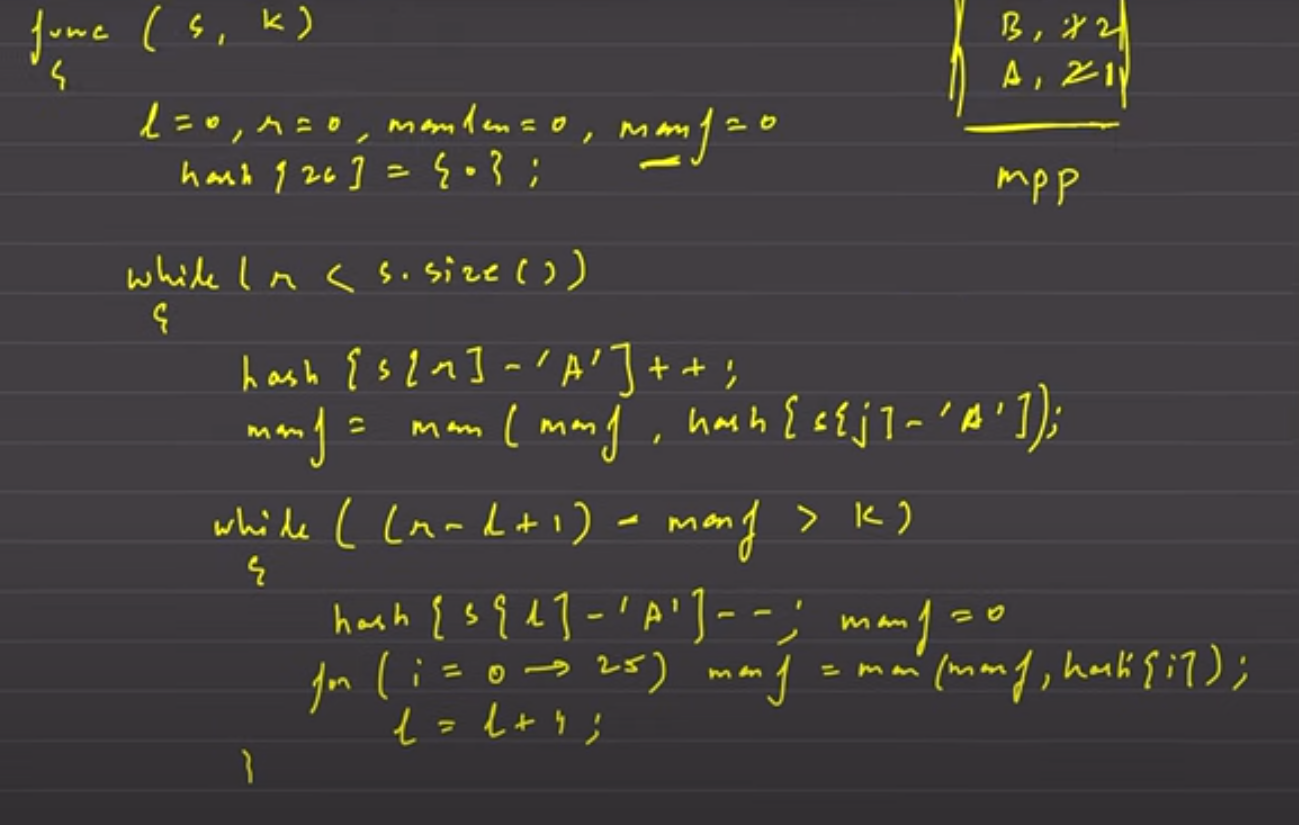 func ( s, k)
{
l=0, r=0, maxlen=0, maxf=0
hash [26] = {0};
while ( r < s.size())
{
hash [s[r] - 'A']++;
maxf = max ( maxf, hash [s[j] - 'A']);
while ( (r-l+1) - maxf > k)
{
hash [s[l] - 'A']--; maxf = 0
for ( i = 0 → 25) maxf = max (maxf, hash[i]);
l = l+1;
}
B, 2
A, 1
mpp